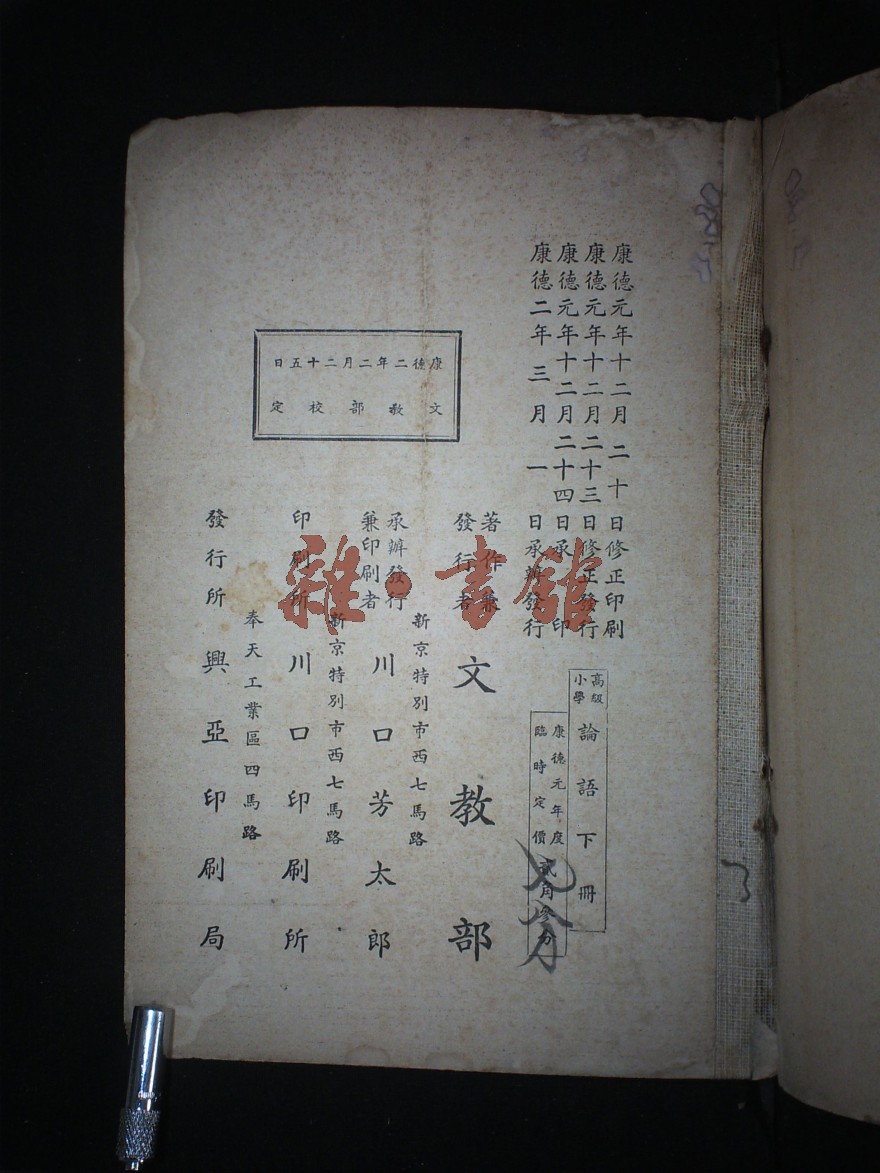 康德元年十二月二十日修正印刷
康德元年十二月二十三日修正發行
康德元年十二月二十四日承印
康德二年三月一日承辦發行
高級小學 論語下冊
康德元年度臨時定價 貳角參分
著作兼發行者 文教部
新京特別市西七馬路
承辦發行兼印刷者 川口芳太郎
新京特別市西七馬路
印刷所 川口印刷所
奉天工業區四馬路
發行所 興亞印刷局
康德二年二月二十五日
文教部校定
雜·書館